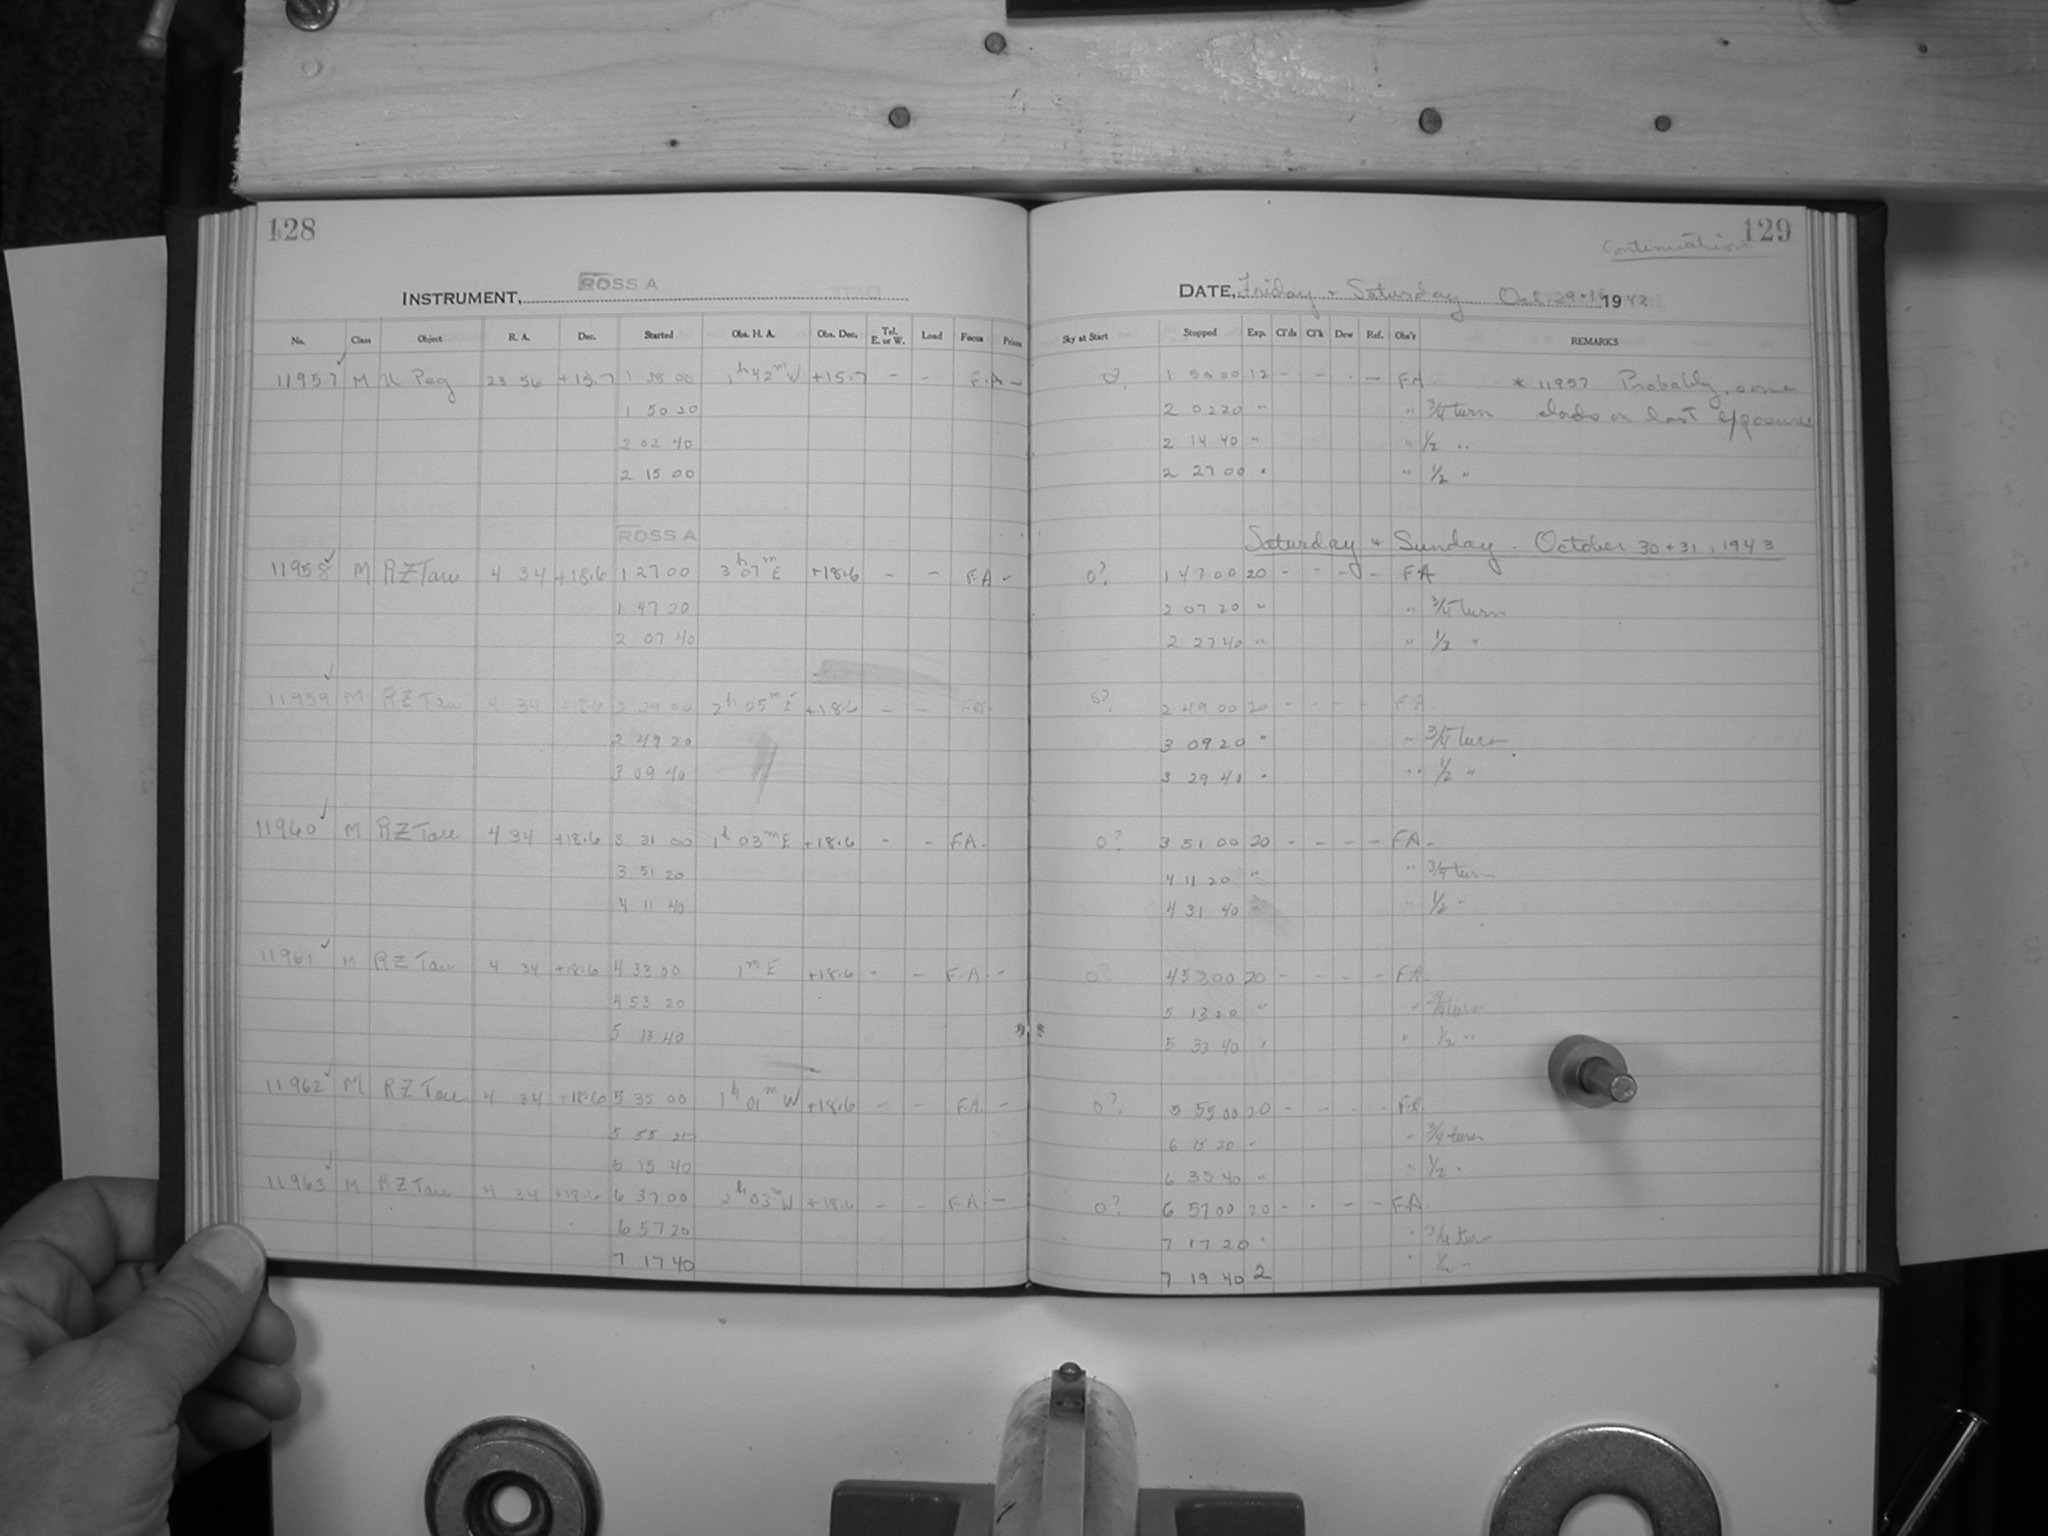 128
129
Continuation
INSTRUMENT, ROSS A
DATE, Friday + Saturday Oct. 29 1943
No. Class Object R. A. Dec. Started Obs. H. A. Obs. Dec. Tel. E. or W. Load Focus Prism Sky at Start Stopped Exp. Cl'ds Cl'k Dew Ref. Obs'r REMARKS
11957 M U Peg 23 56 +15.7 1 38 00 1h 42m W +15.7 - - F.A - 1 50 00 12 - - - - FA * 11957 Probably some
1 50 20 2 02 20 " " 3/4 turn clouds on last exposure
2 02 40 2 14 40 " " 1/2 "
2 15 00 2 27 00 " " 1/2 "
ROSS A Saturday + Sunday. October 30 + 31, 1943
11958 M RZ Tau 4 34 +18.6 1 27 00 3h 07m E +18.6 - - F.A - 0? 1 47 00 20 - - - - FA
1 47 20 2 07 20 " " 3/4 turn
2 07 40 2 27 40 " " 1/2 "
11959 M RZ Tau 4 34 +18.6 2 29 00 2h 05m E +18.6 - - FA 2 49 00 20 - - - - FA.
2 49 20 3 09 20 " " 3/4 turn
3 09 40 3 29 40 " " 1/2 "
11960 M RZ Tau 4 34 +18.6 3 31 00 1h 03m E +18.6 - - FA - 0? 3 51 00 20 - - - - FA -
3 51 20 4 11 20 " " 3/4 turn
4 11 40 4 31 40 " " 1/2 "
11961 M RZ Tau 4 34 +18.6 4 33 00 1m E +18.6 - - F.A - 0? 4 53 00 20 - - - - FA.
4 53 20 5 13 20 " " 3/4 turn
5 13 40 5 33 40 " " 1/2 "
11962 M RZ Tau 4 34 +18.6 5 35 00 1h 01m W +18.6 - - FA - 0? 5 55 00 20 - - - - FA.
5 55 20 6 15 20 " " 3/4 turn
6 15 40 6 35 40 " " 1/2 "
11963 M RZ Tau 4 34 +18.6 6 37 00 2h 03m W +18.6 - - F.A - 0? 6 57 00 20 - - - - FA.
6 57 20 7 17 20 " " 3/4 turn
7 17 40 7 19 40 2 " 1/2 "